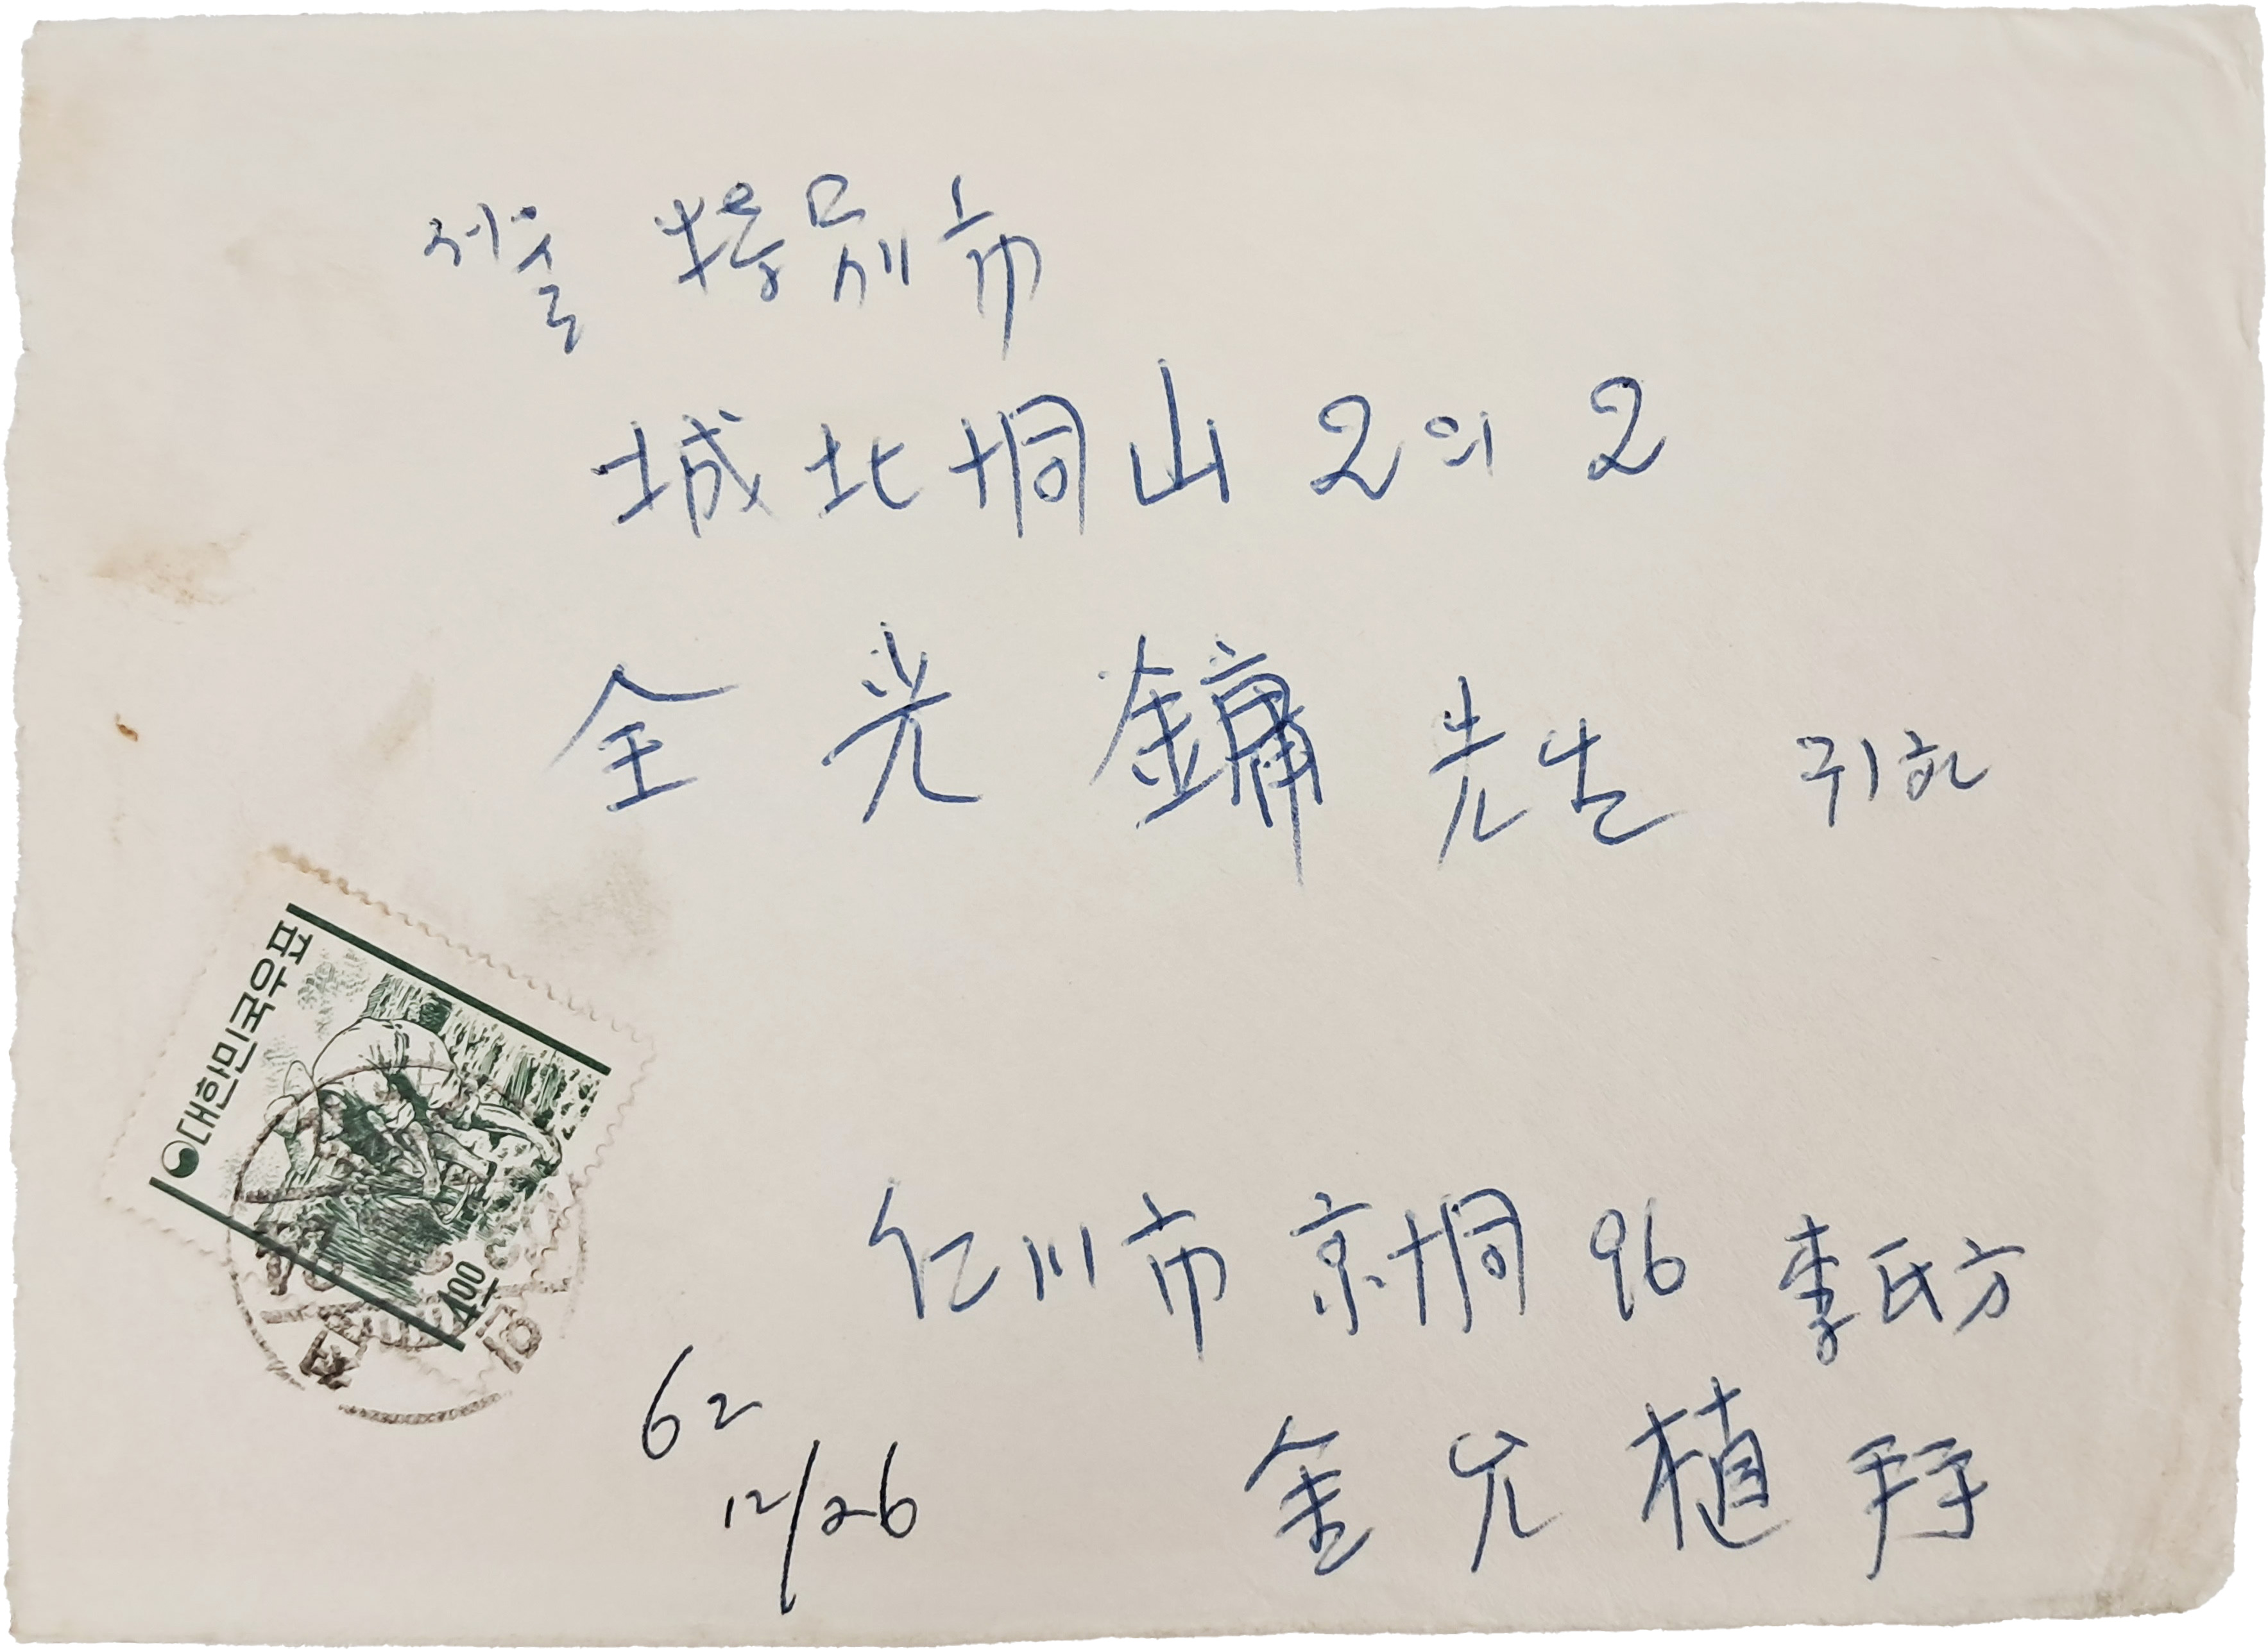 서울 特別市
城北垌山 2의 2
全光鏞 先生 귀하
대한민국우표
4.00
仁川市 京垌 96 李氏方
金允植 拜
62
12/26